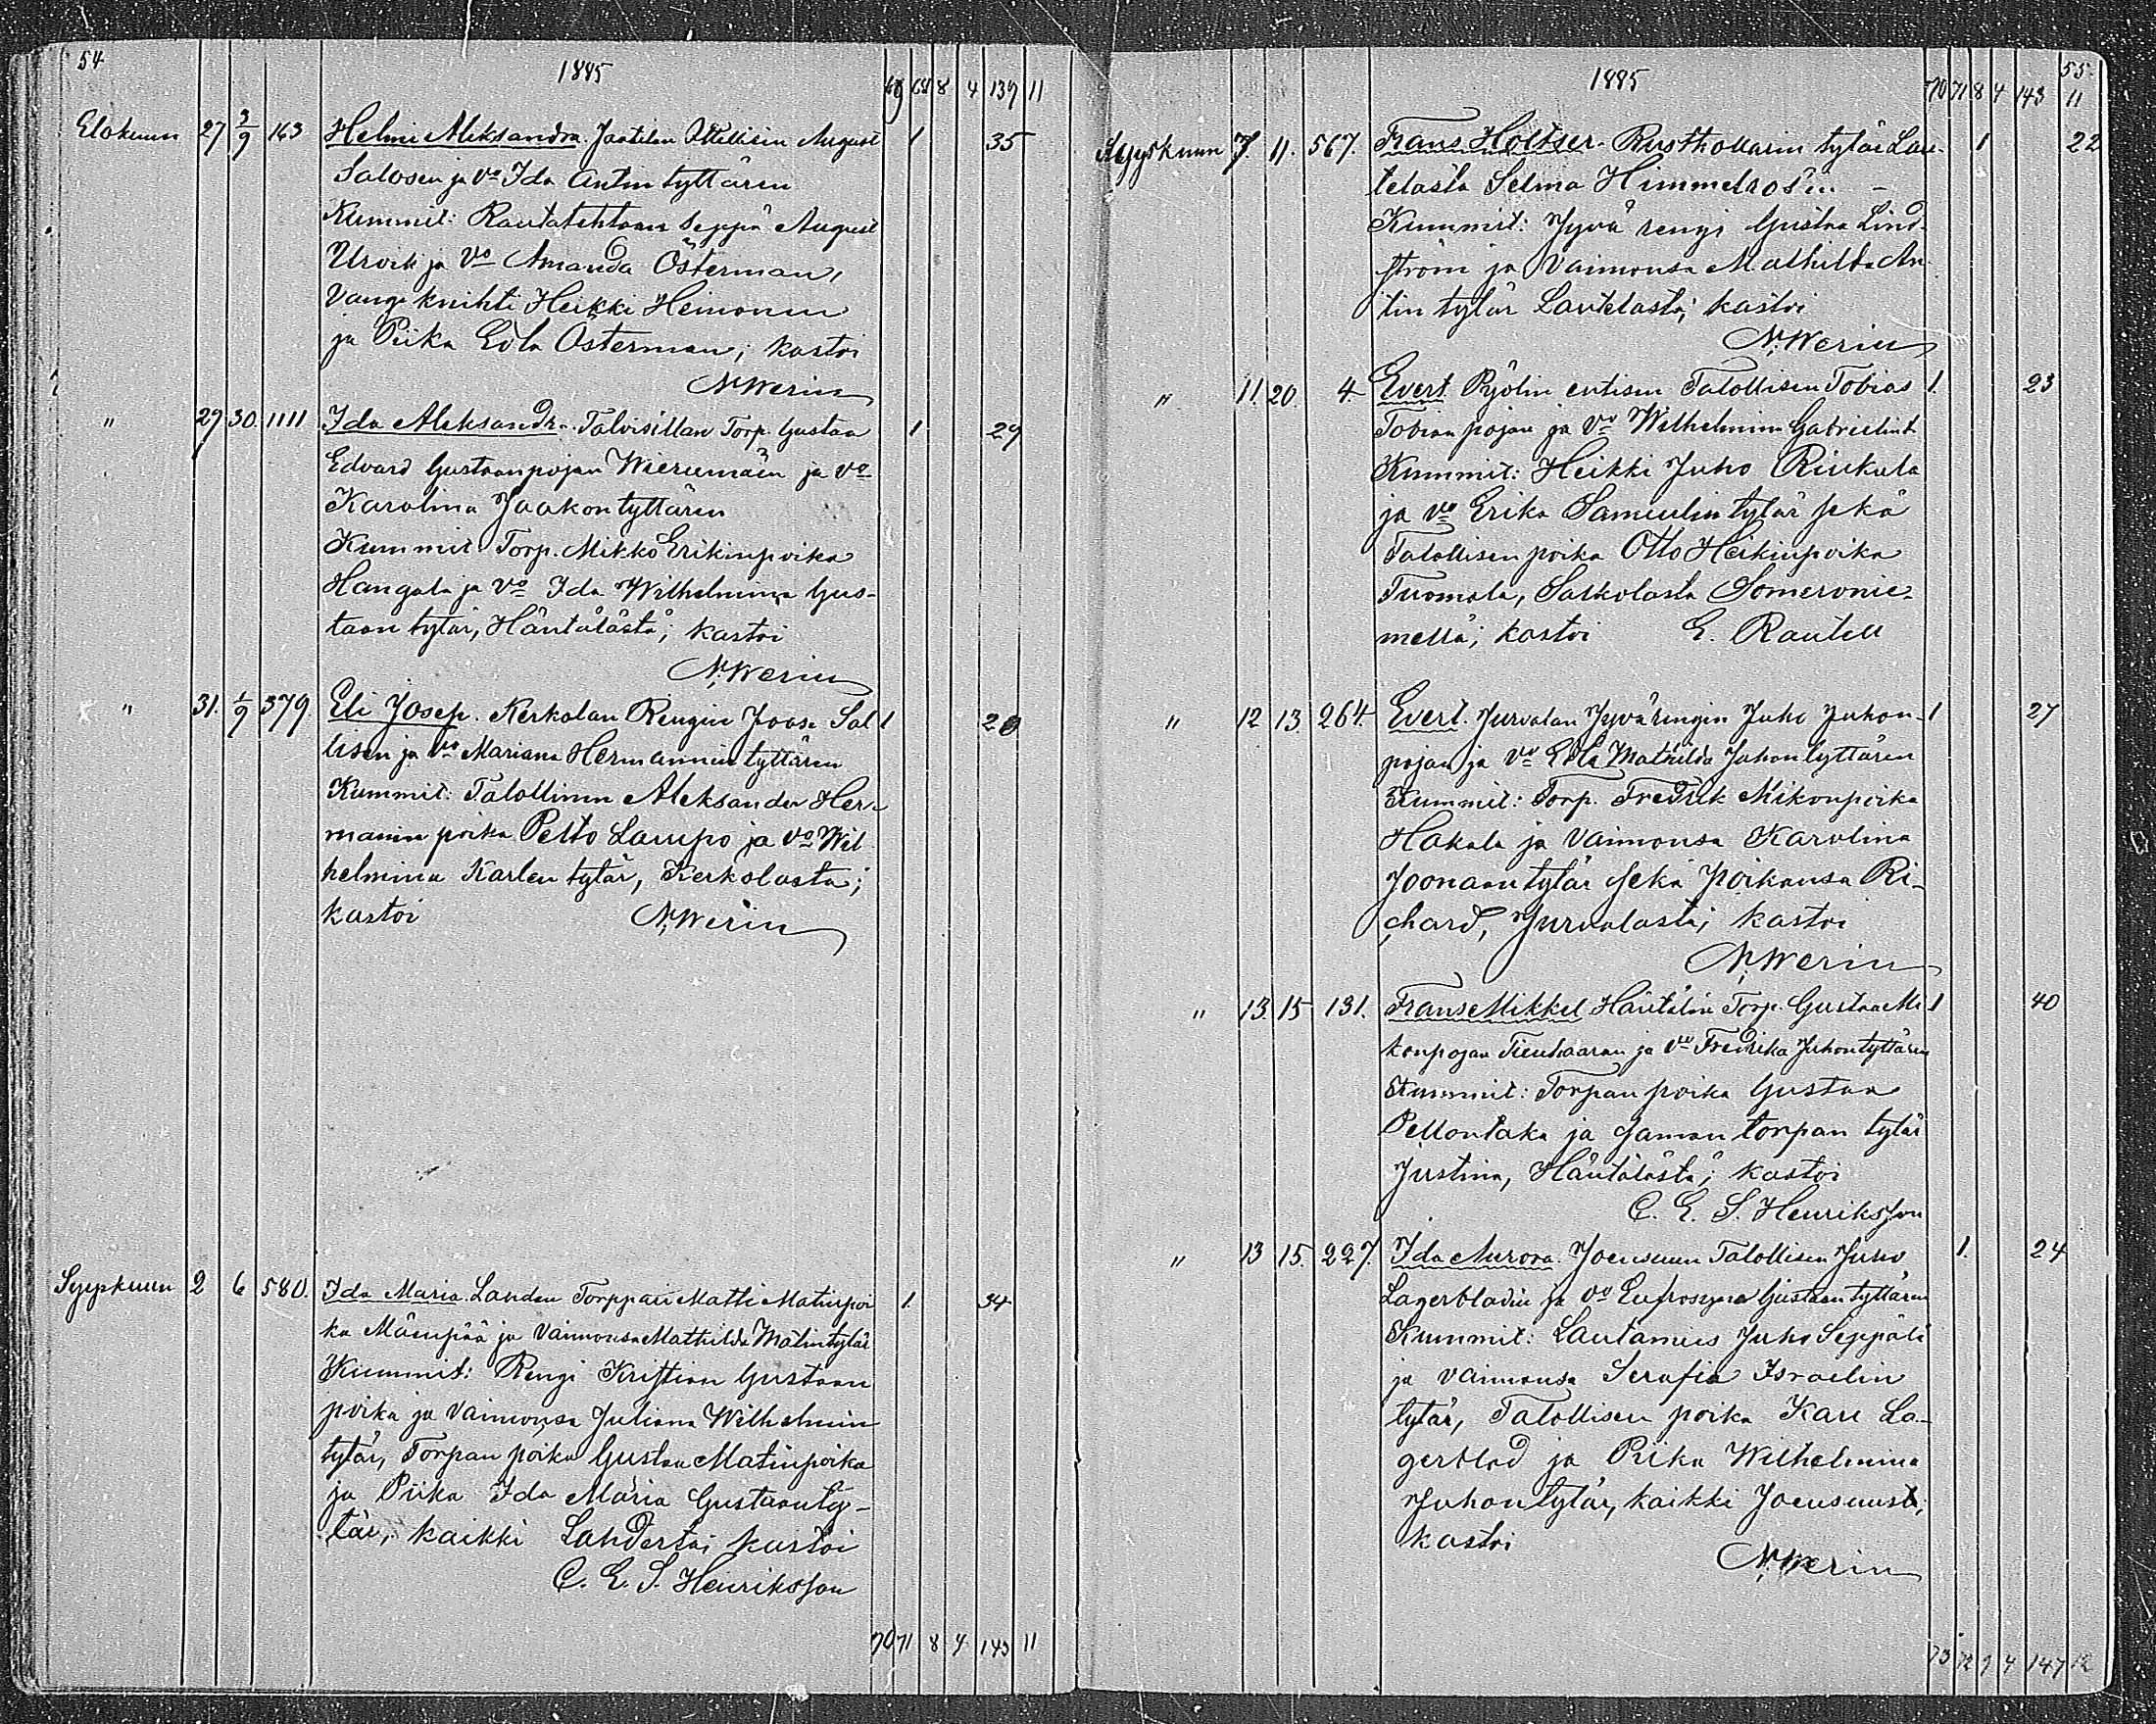 54
1885
69 68 8 4 137 11
Elokuun 27 3/9 163 Helmi Aleksandra. Jaatilan Itsellisen August 1 35
Salosen ja vo Ida Antin tyttären
Kummit: Rautatehtaan Seppä August
Urvik ja vo Amanda Österman,
Vanginknihti Heikki Heinonen
ja Piika Eva Österman; kastoi
N. Werin
" 29 30. 1111 Ida Aleksandra. Talvisillan Torp. Gustaa 1 29
Edvard Gustaanpojan Wierumäen ja vo
Karolina Jaakon tyttären
Kummit: Torp. Mikko Erikinpoika
Hangala ja vo Ida Wilhelmina Gus-
taan tytär, Häntälästä; kastoi
N. Werin
" 31. 1/9 379. Eli Josep. Kerkolan Rengin Joose Sal 1 20
lisen ja vo Mariana Hermannin tyttären
Kummit: Talollinen Aleksander Her-
mannin poika Pelto Laurpo ja vo Wil
helmina Karlen tytär, Kerkolasta;
kastoi N. Werin
Syyskuun 2 6 580. Ida Maria. Lahden Torppari Matti Matinpoi 1. 34
ka Mäenpää ja Vaimonsa Mathilda Matintytär
Kummit: Rengi Kristian Gustaan
poika ja Vaimonsa Juliana Wilhelmin
tytär, Torpan poika Gustaa Matinpoika
ja Piika Ida Maria Gustaanty-
tär, kaikki Lahdesta; kastoi
C. E. S. Henriksson
70 71 8 4 143 11
55.
1885
70 71 8 4 143 11
Syyskuun 7. 11. 567. Frans Holtser. Rusthollarin tytär Lau- 1 22
telasta Selma Himmelros'en –
Kummit: Jyvä rengi Gustaa Lind-
ström ja Vaimonsa Mathilda An-
tin tytär Lautelasta; kastoi
N. Werin
" 11. 20. 4. Evert. Pyölin entisen Talollisen Tobias 1. 23
Tobian pojan ja vo Wilhelmina Gabrielint.
Kummit: Heikki Juho Riukula
ja vo Erika Samuelin tytär sekä
Talollisen poika Otto Heikinpoika
Tuomola, Salkolasta Somernie-
mellä; kastoi E. Rautell
" 12 13. 264. Evert. Jurvalan Jyvärengin Juho Juhon- 1 27
pojan ja vo Eva Mathilda Juhontyttären
Kummit: Torp. Fredrik Mikonpoika
Hakala ja Vaimonsa Karolina
Joonaan tytär sekä poikansa Ri-
chard, Jurvalasta; kastoi
N. Werin
" 13. 15 131. Frans Mikkel. Häntälän Torp. Gustaa Mi 1 40
konpojan Tienhaaran ja vo Fredrika Juhontyttären
Kummit: Torpan poika Gustaa
Pellontaka ja saman torpan tytär
Justina, Häntälästä; kastoi
C. E. S. Henriksson
" 13 15. 227. Ida Aurora. Joensuun Talollisen Juho 1. 24
Lagerbladin ja vo Eufrosyna Gustaan tyttären
Kummit: Lautamies Juho Seppälä
ja Vaimonsa Serafia Israelin
tytär, Talollisen poika Karl La-
gerblad ja Piika Wilhelmina
Juhontytär, kaikki Joensuusta;
kastoi
N. Werin
73 72 9 4 147 12